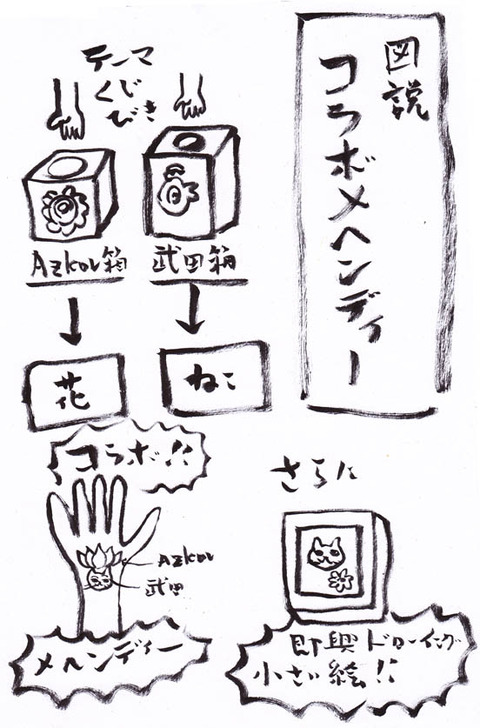 図説
コラボメヘンディー
テーマ
くじ
びき
Azkol箱
武田箱
花
ねこ
コラボ!!
Azkol
武田
メヘンディー
さらに
即興ドローイング
小さい絵!!